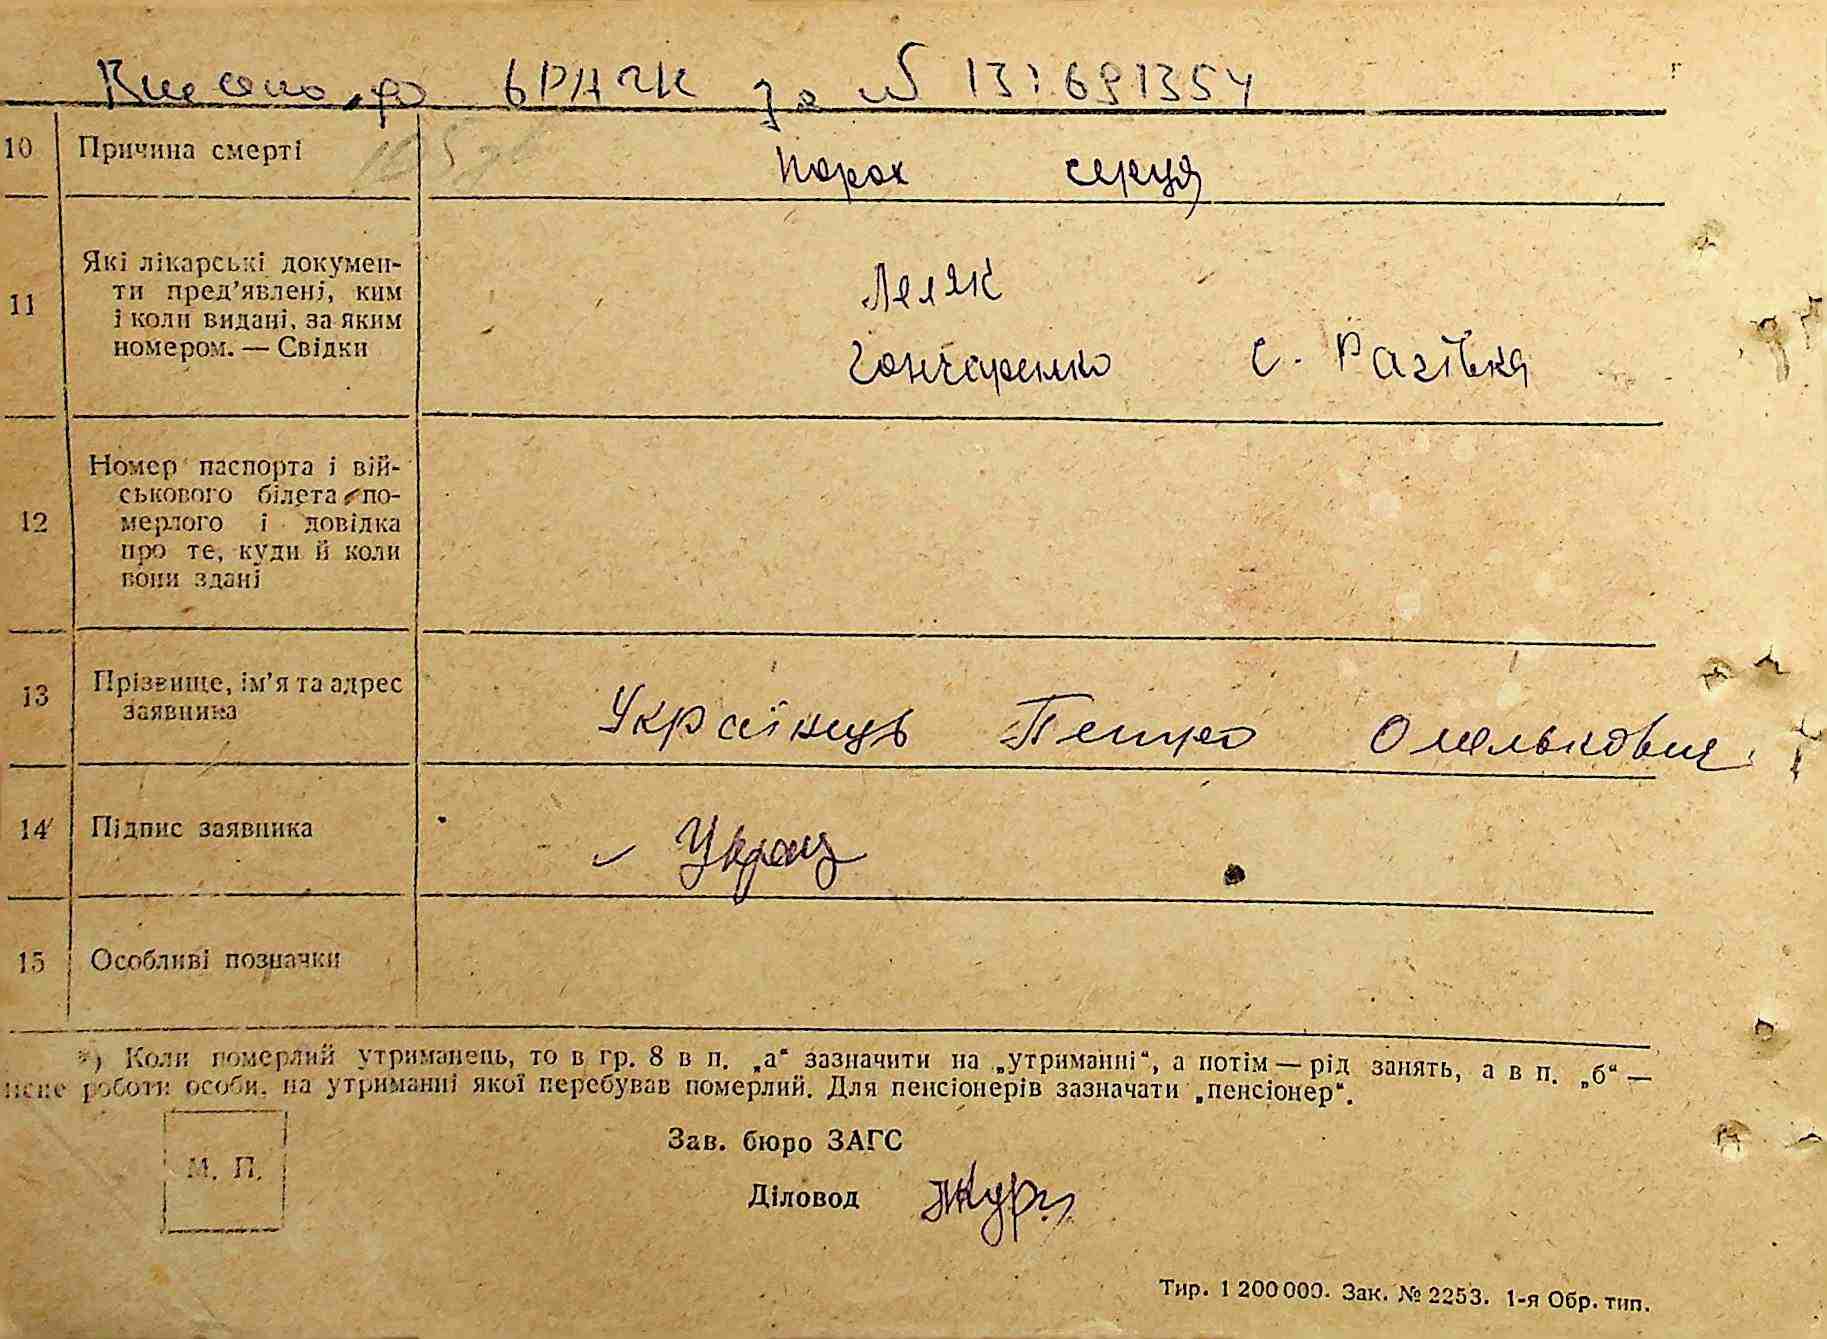 Внесено до ДРАЦСГ за № 131691354
10 Причина смерті порок серця
11 Які лікарські докумен-
ти пред'явлені, ким
і коли видані, за яким
номером. — Свідки
Леляк
Гончаренко с. Разівка
12 Номер паспорта і вій-
ськового білета по-
мерлого і довідка
про те, куди й коли
вони здані
13 Прізвище, ім'я та адрес
заявника
Українець Петро Омелькович
14 Підпис заявника Украц
15 Особливі позначки
*) Коли померлий утриманець, то в гр. 8 в п. „а“ зазначити на „утриманні“, а потім — рід занять, а в п. „б“ —
місце роботи особи, на утриманні якої перебував померлий. Для пенсіонерів зазначати „пенсіонер“.
Зав. бюро ЗАГС
М. П.
Діловод
Тир. 1 200 000. Зак. № 2253. 1-я Обр. тип.